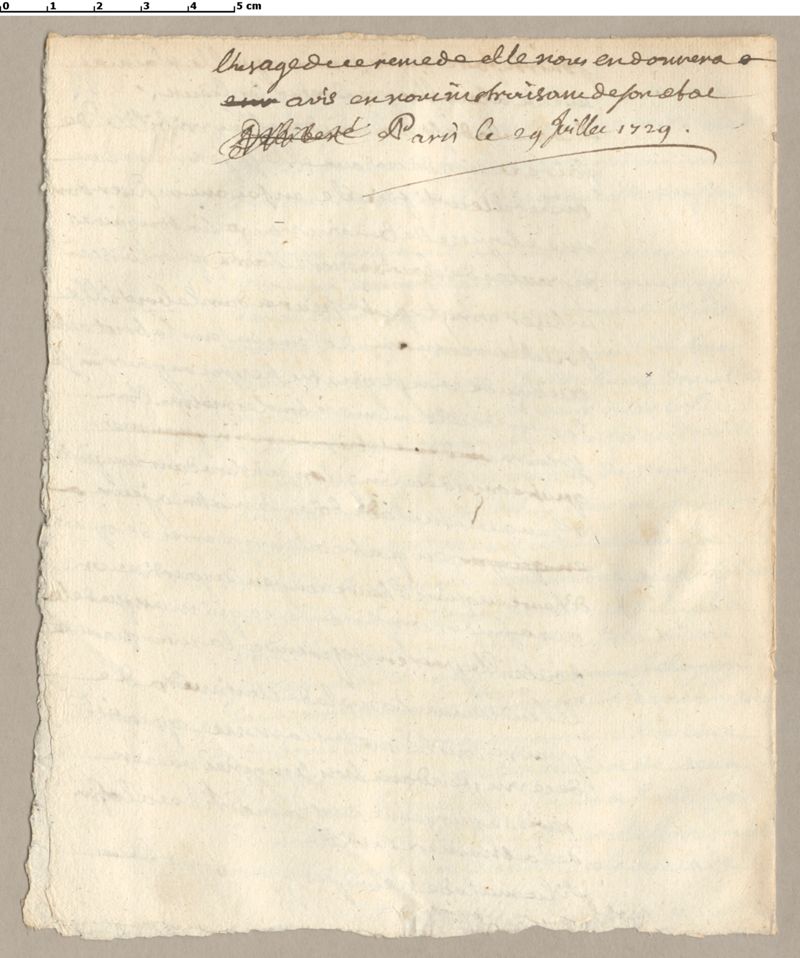 0 1 2 3 4 5 cm
l'usage de ce remede elle nous en donnera
avis en nous instruisant de son etat
Paris le 29 Juillet 1729.